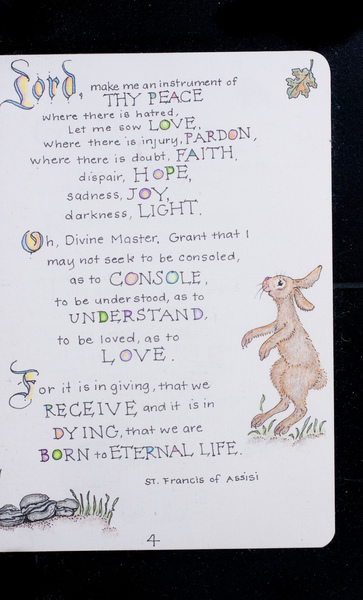 Lord, make me an instrument of
THY PEACE
where there is hatred,
Let me sow LOVE,
where there is injury, PARDON,
where there is doubt, FAITH,
dispair, HOPE,
sadness, JOY,
darkness, LIGHT.
Oh, Divine Master, Grant that I
may not seek to be consoled,
as to CONSOLE,
to be understood, as to
UNDERSTAND,
to be loved, as to
LOVE.
For it is in giving, that we
RECEIVE and it is in
DYING, that we are
BORN to ETERNAL LIFE.
ST. Francis of Assisi
4